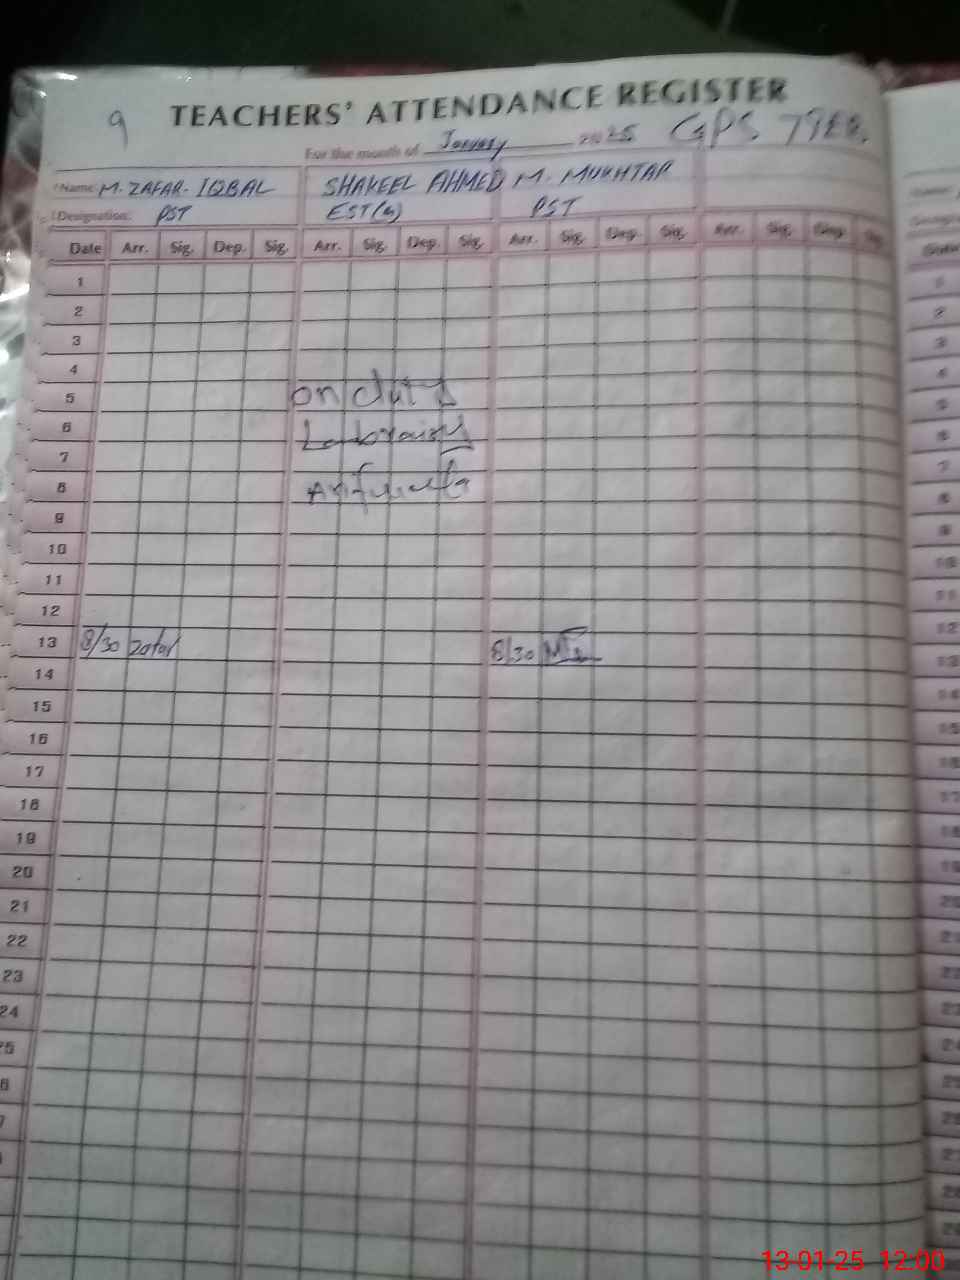 9 TEACHERS' ATTENDANCE REGISTER
For the month of January 2025 GPS
Name M. ZAFAR. IQBAL SHAKEEL AHMED M. MUKHTAR
Designation: PST EST( PST
Date Arr. Sig. Dep. Sig. Arr. Sig. Dep. Sig. Arr. Sig. Dep. Sig. Arr. Sig. Dep. Sig.
1
2
3
4
5 on duty
6
7
8
9
10
11
12
13 8/30 Zafar 8/30
14
15
16
17
18
19
20
21
22
23
24
25
6
7
13-01-25 12:00